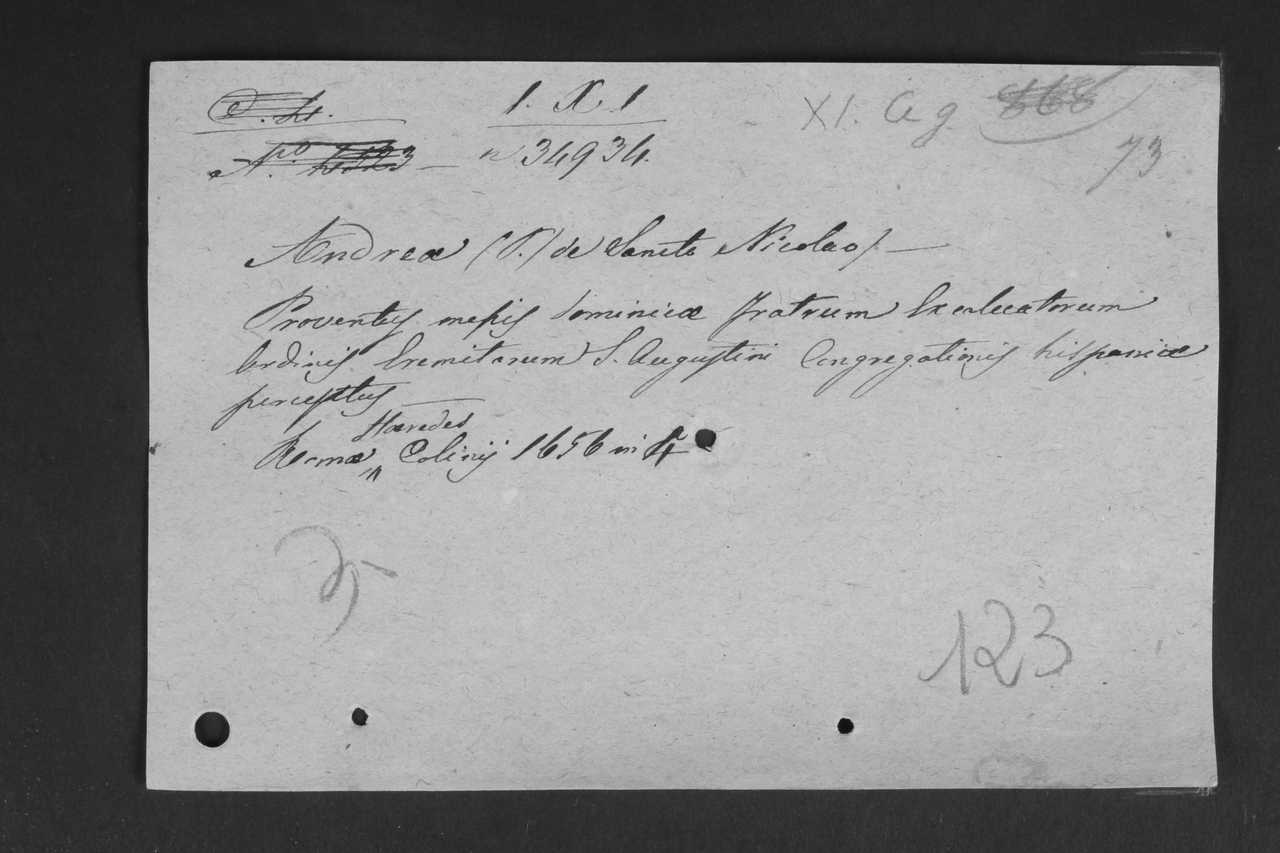 1. X 1
XI. Ag. 868
n 34934.
73
Andrea (P.) de Sancto Nicolao).—
Proventus messis dominicæ Fratrum Excalceatorum
Ordinis Eremitarum S. Augustini Congregationis hispaniæ
perceptus —
Hæredes
Romæ Colinij 1656 in 4
123